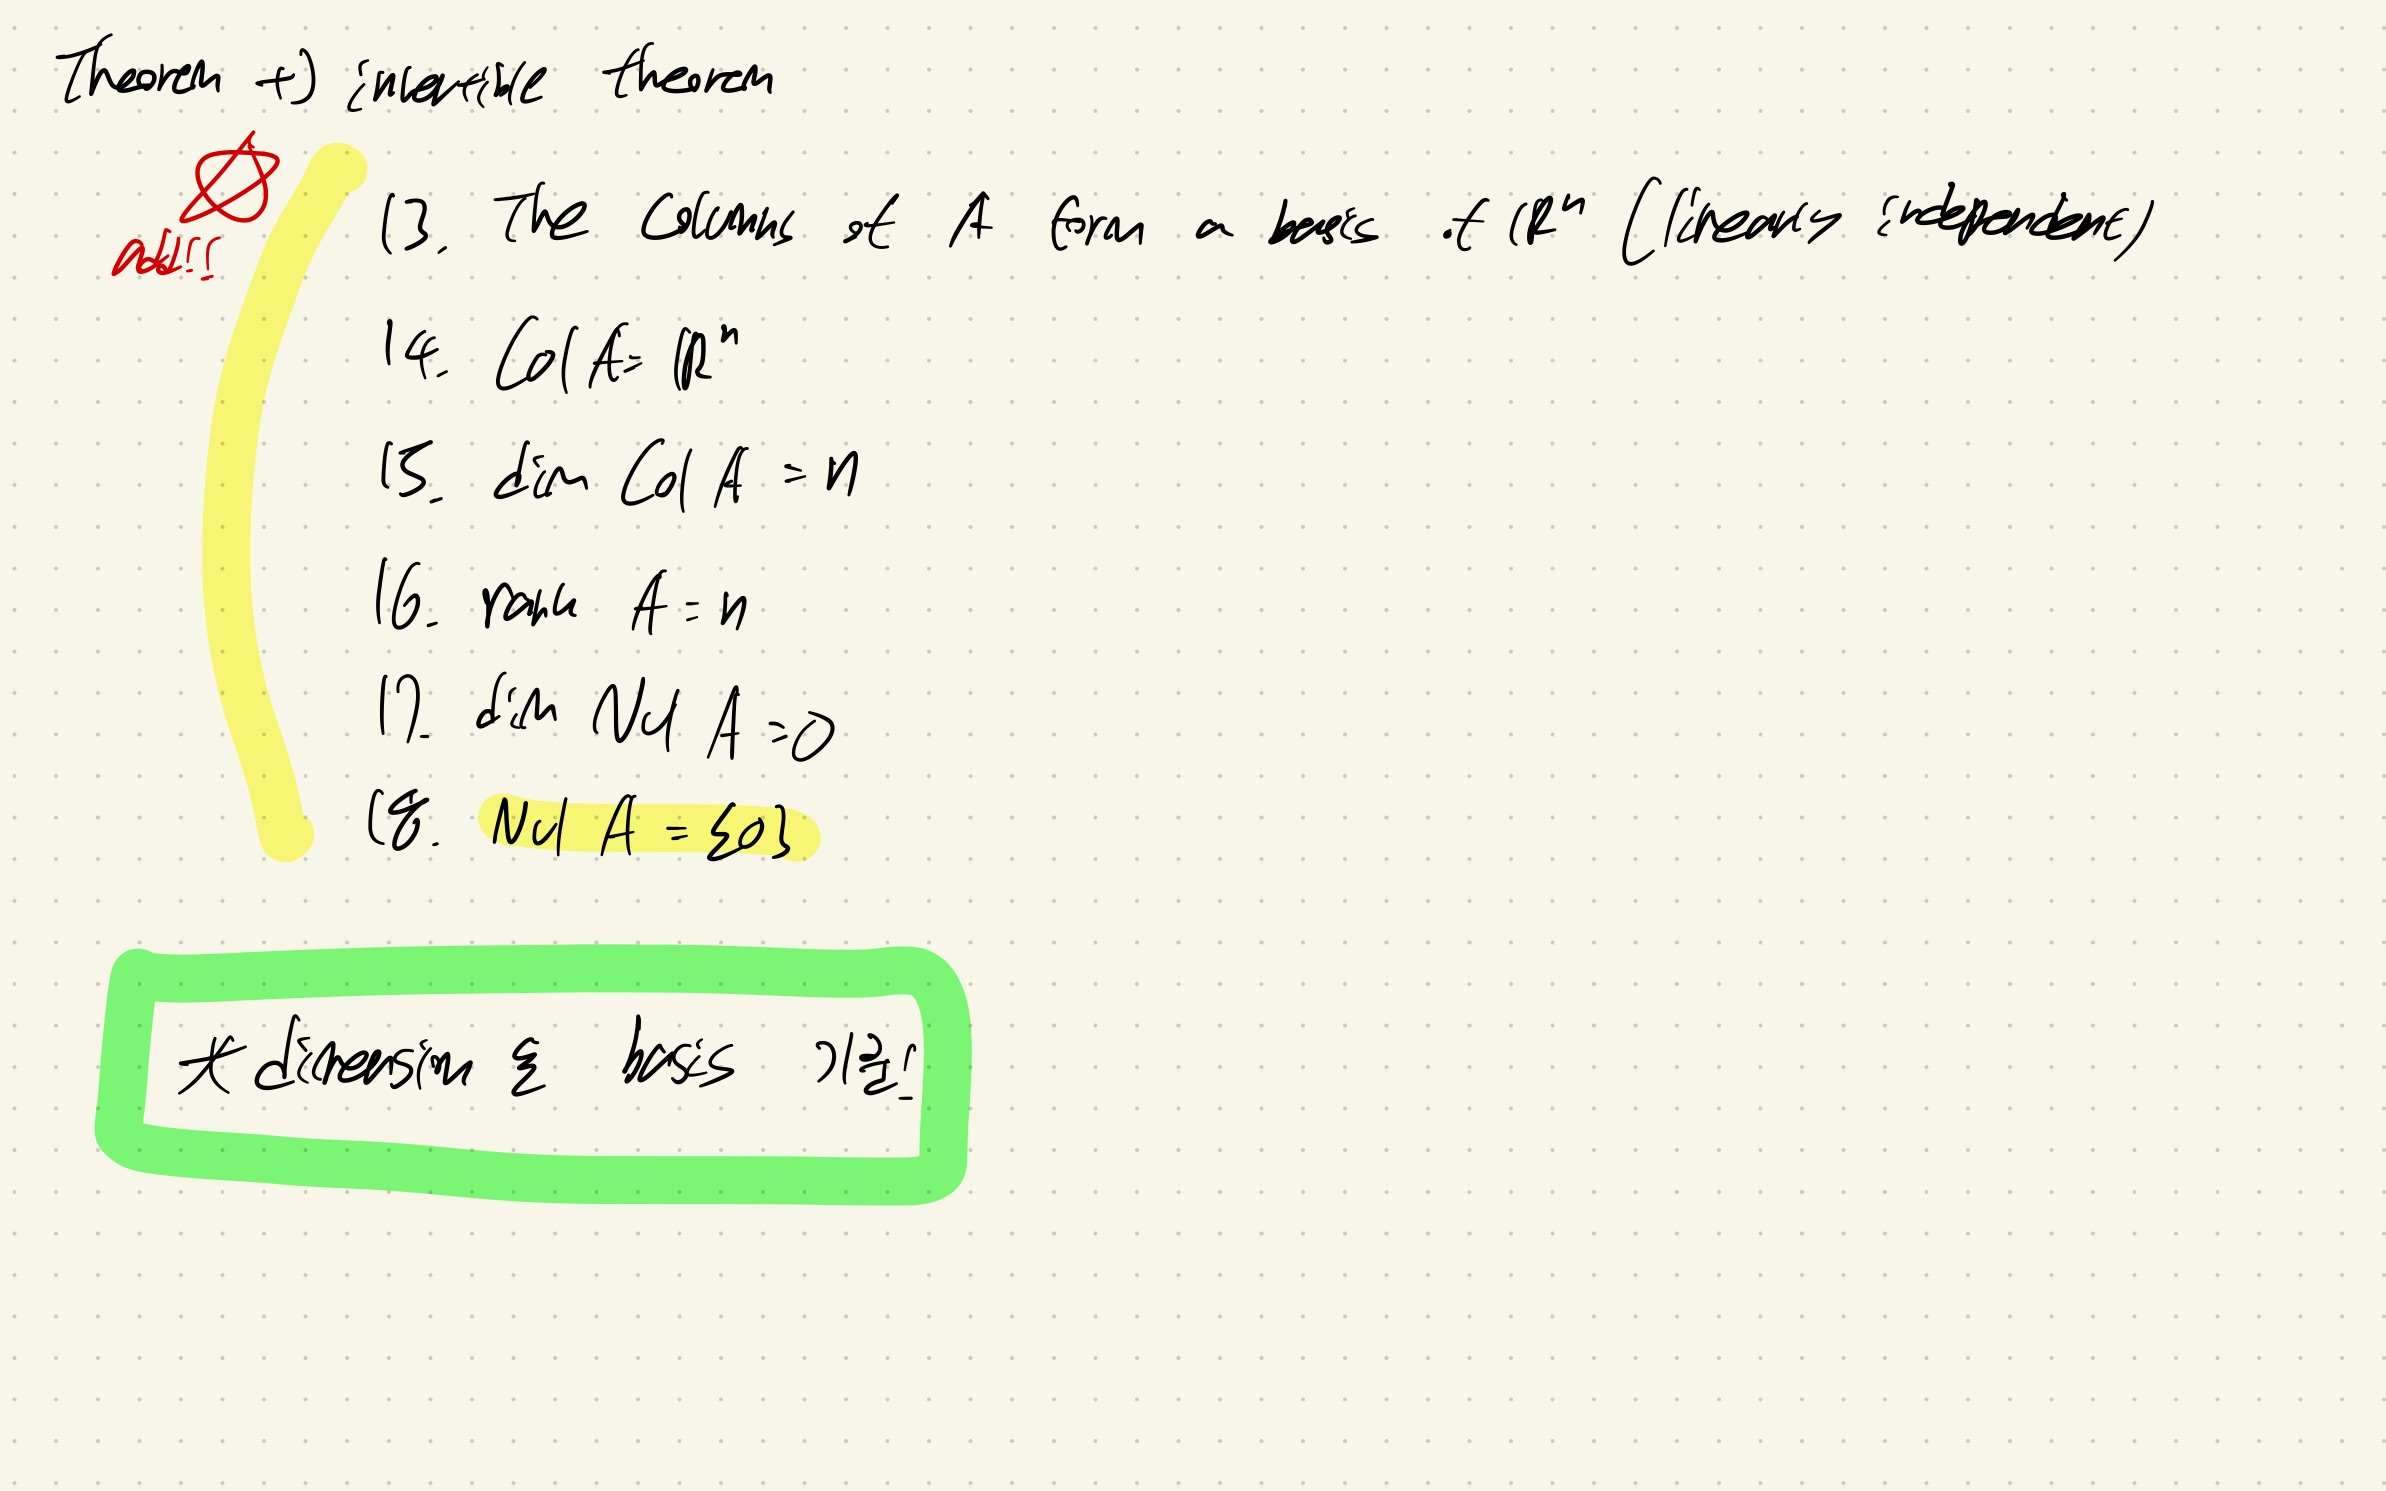 Theorem +) invertible theorem
add!!
13. The columns of A form a basis of ℝⁿ (linearly independent)
14. Col A = ℝⁿ
15. dim Col A = n
16. rank A = n
17. dim Nul A = 0
18. Nul A = {0}
* dimension & basis 기준!